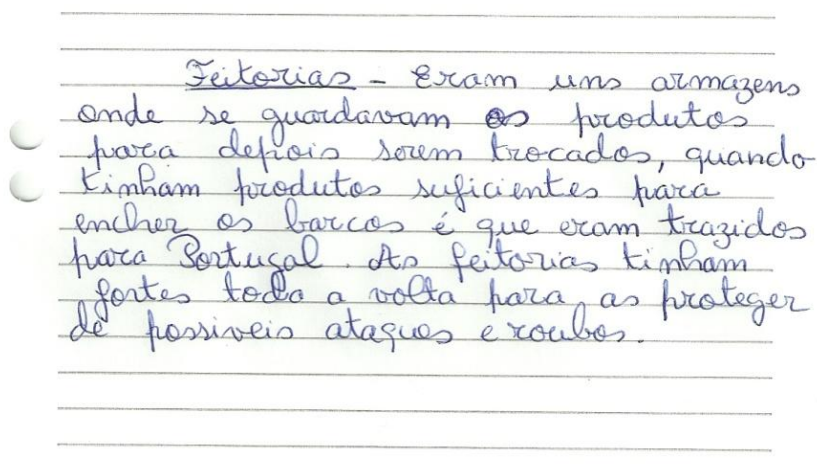 Feitorias - Eram uns armazens
onde se guardavam os produtos
para depois serem trocados, quando
tinham produtos suficientes para
encher os barcos é que eram trazidos
para Portugal. As feitorias tinham
fortes toda a volta para as proteger
de possiveis ataques e roubos.